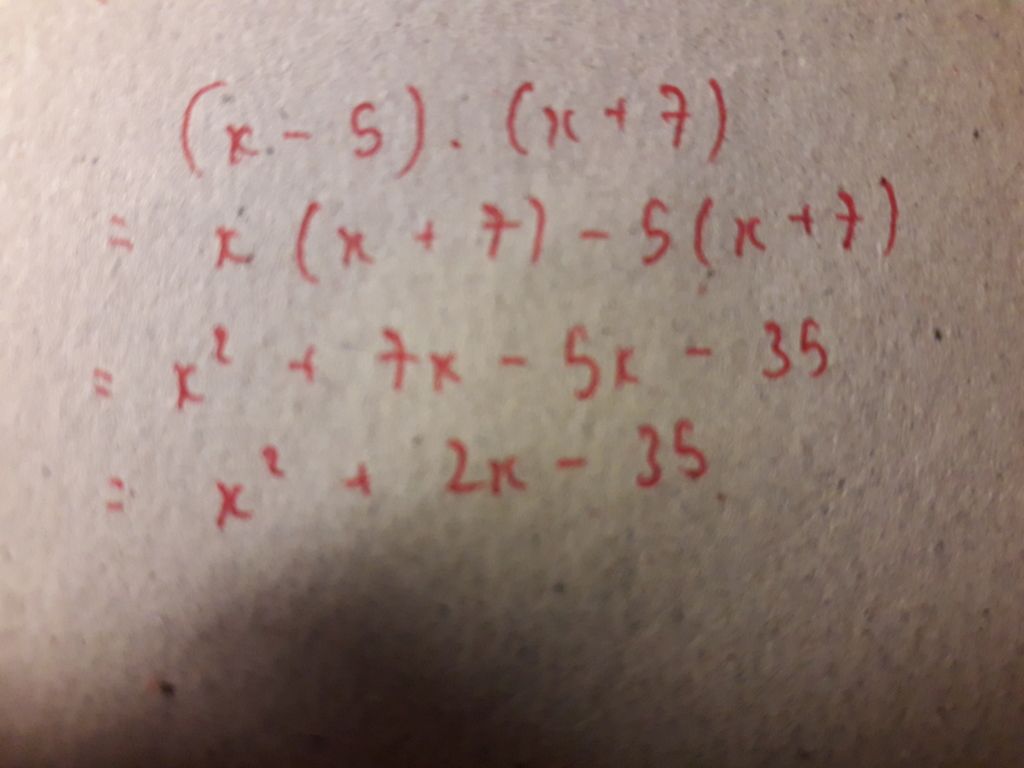 (x - 5) . (x + 7)
= x (x + 7) - 5 (x + 7)
= x² + 7x - 5x - 35
= x² + 2x - 35